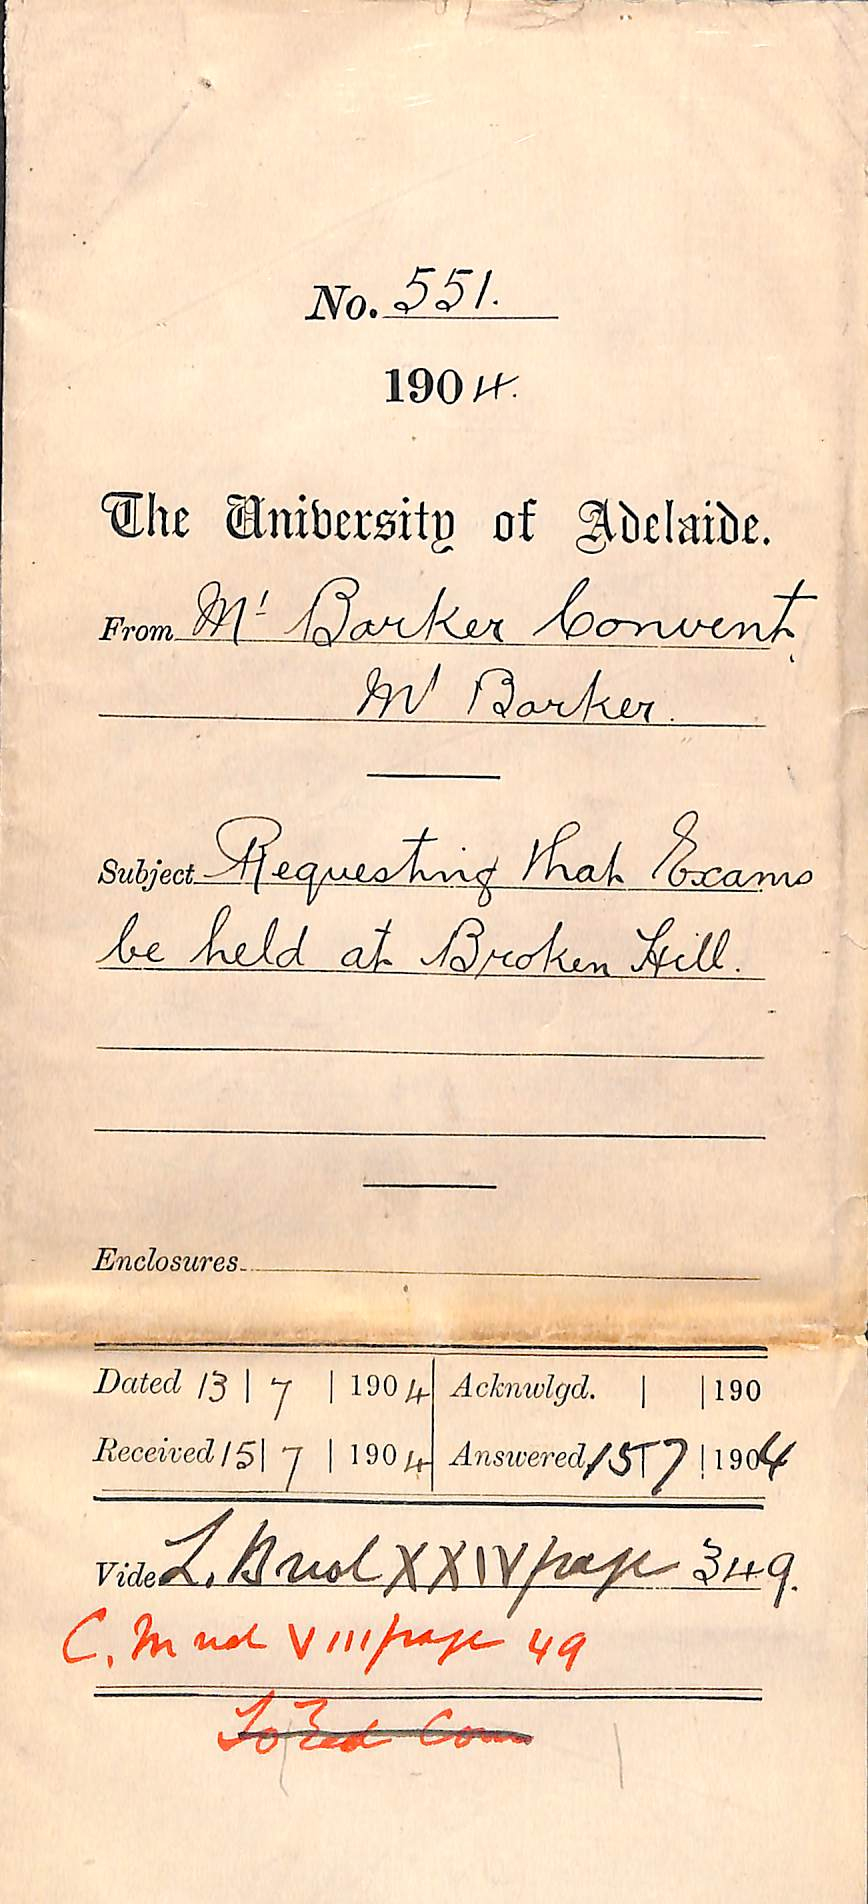 No. 551.
1904.
The University of Adelaide.
From Mt Barker Convent,
Mt Barker.
Subject Requesting that Exams
be held at Broken Hill.
Enclosures
Dated 13 | 7 | 1904 Acknwlgd. | | 190
Received 15 | 7 | 1904 Answered 15 | 7 | 1904
Vide L. B vol XXIV page 349.
C. M vol VIII page 49
To Ed Com